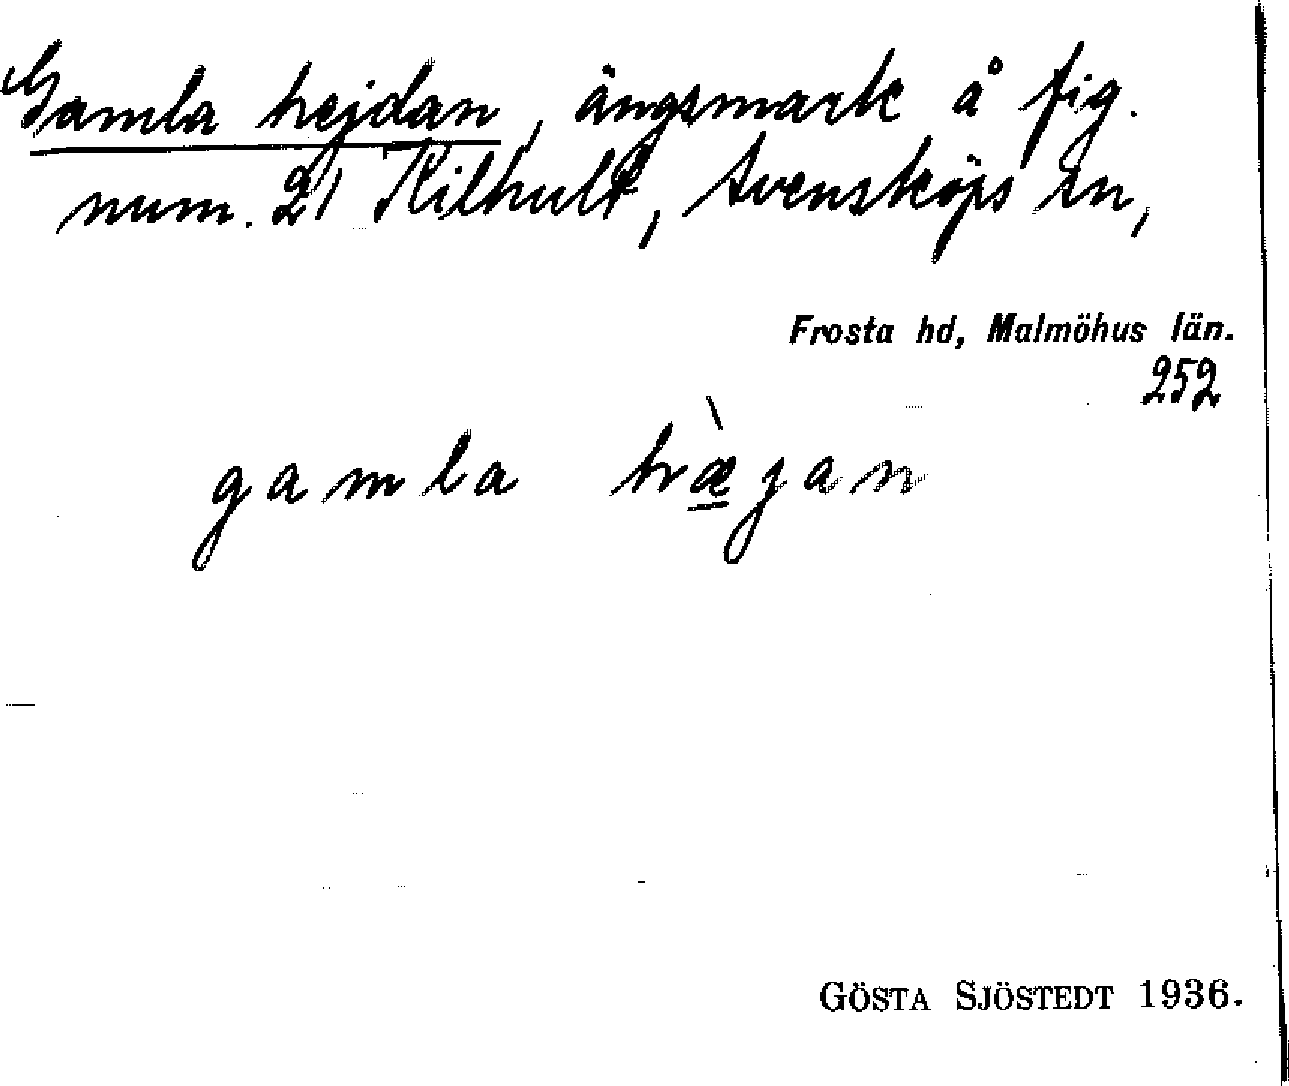 Gamla hejdan, ängsmark å fig.
num. 21 Kilhult, Svensköps sn,
Frosta hd, Malmöhus län.
252
gamla hæ̱̀jan
GÖSTA SJÖSTEDT 1936.